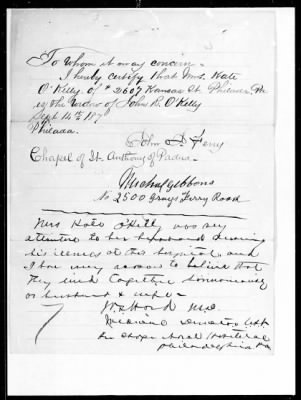 To whom it may concern.
I hereby certify that Mrs. Kate
O'Kelly of # 2607 Kansas St. Philada Pa
is the widow of John R. O'Kelly
Sept 14th 187
Philada.
John D. Ferry
Chapel of St. Anthony of Padua.
Michael Gibbons
No 2500 Grays Ferry Road
Mrs Kate O'Kelly was very
attentive to her husband during
his illness at this hospital and
I have every reason to believe that
they lived together harmoniously
as husband & wife
Wm Hord MD.
Medical Director USN
in charge Naval Hospital
Philadelphia Pa